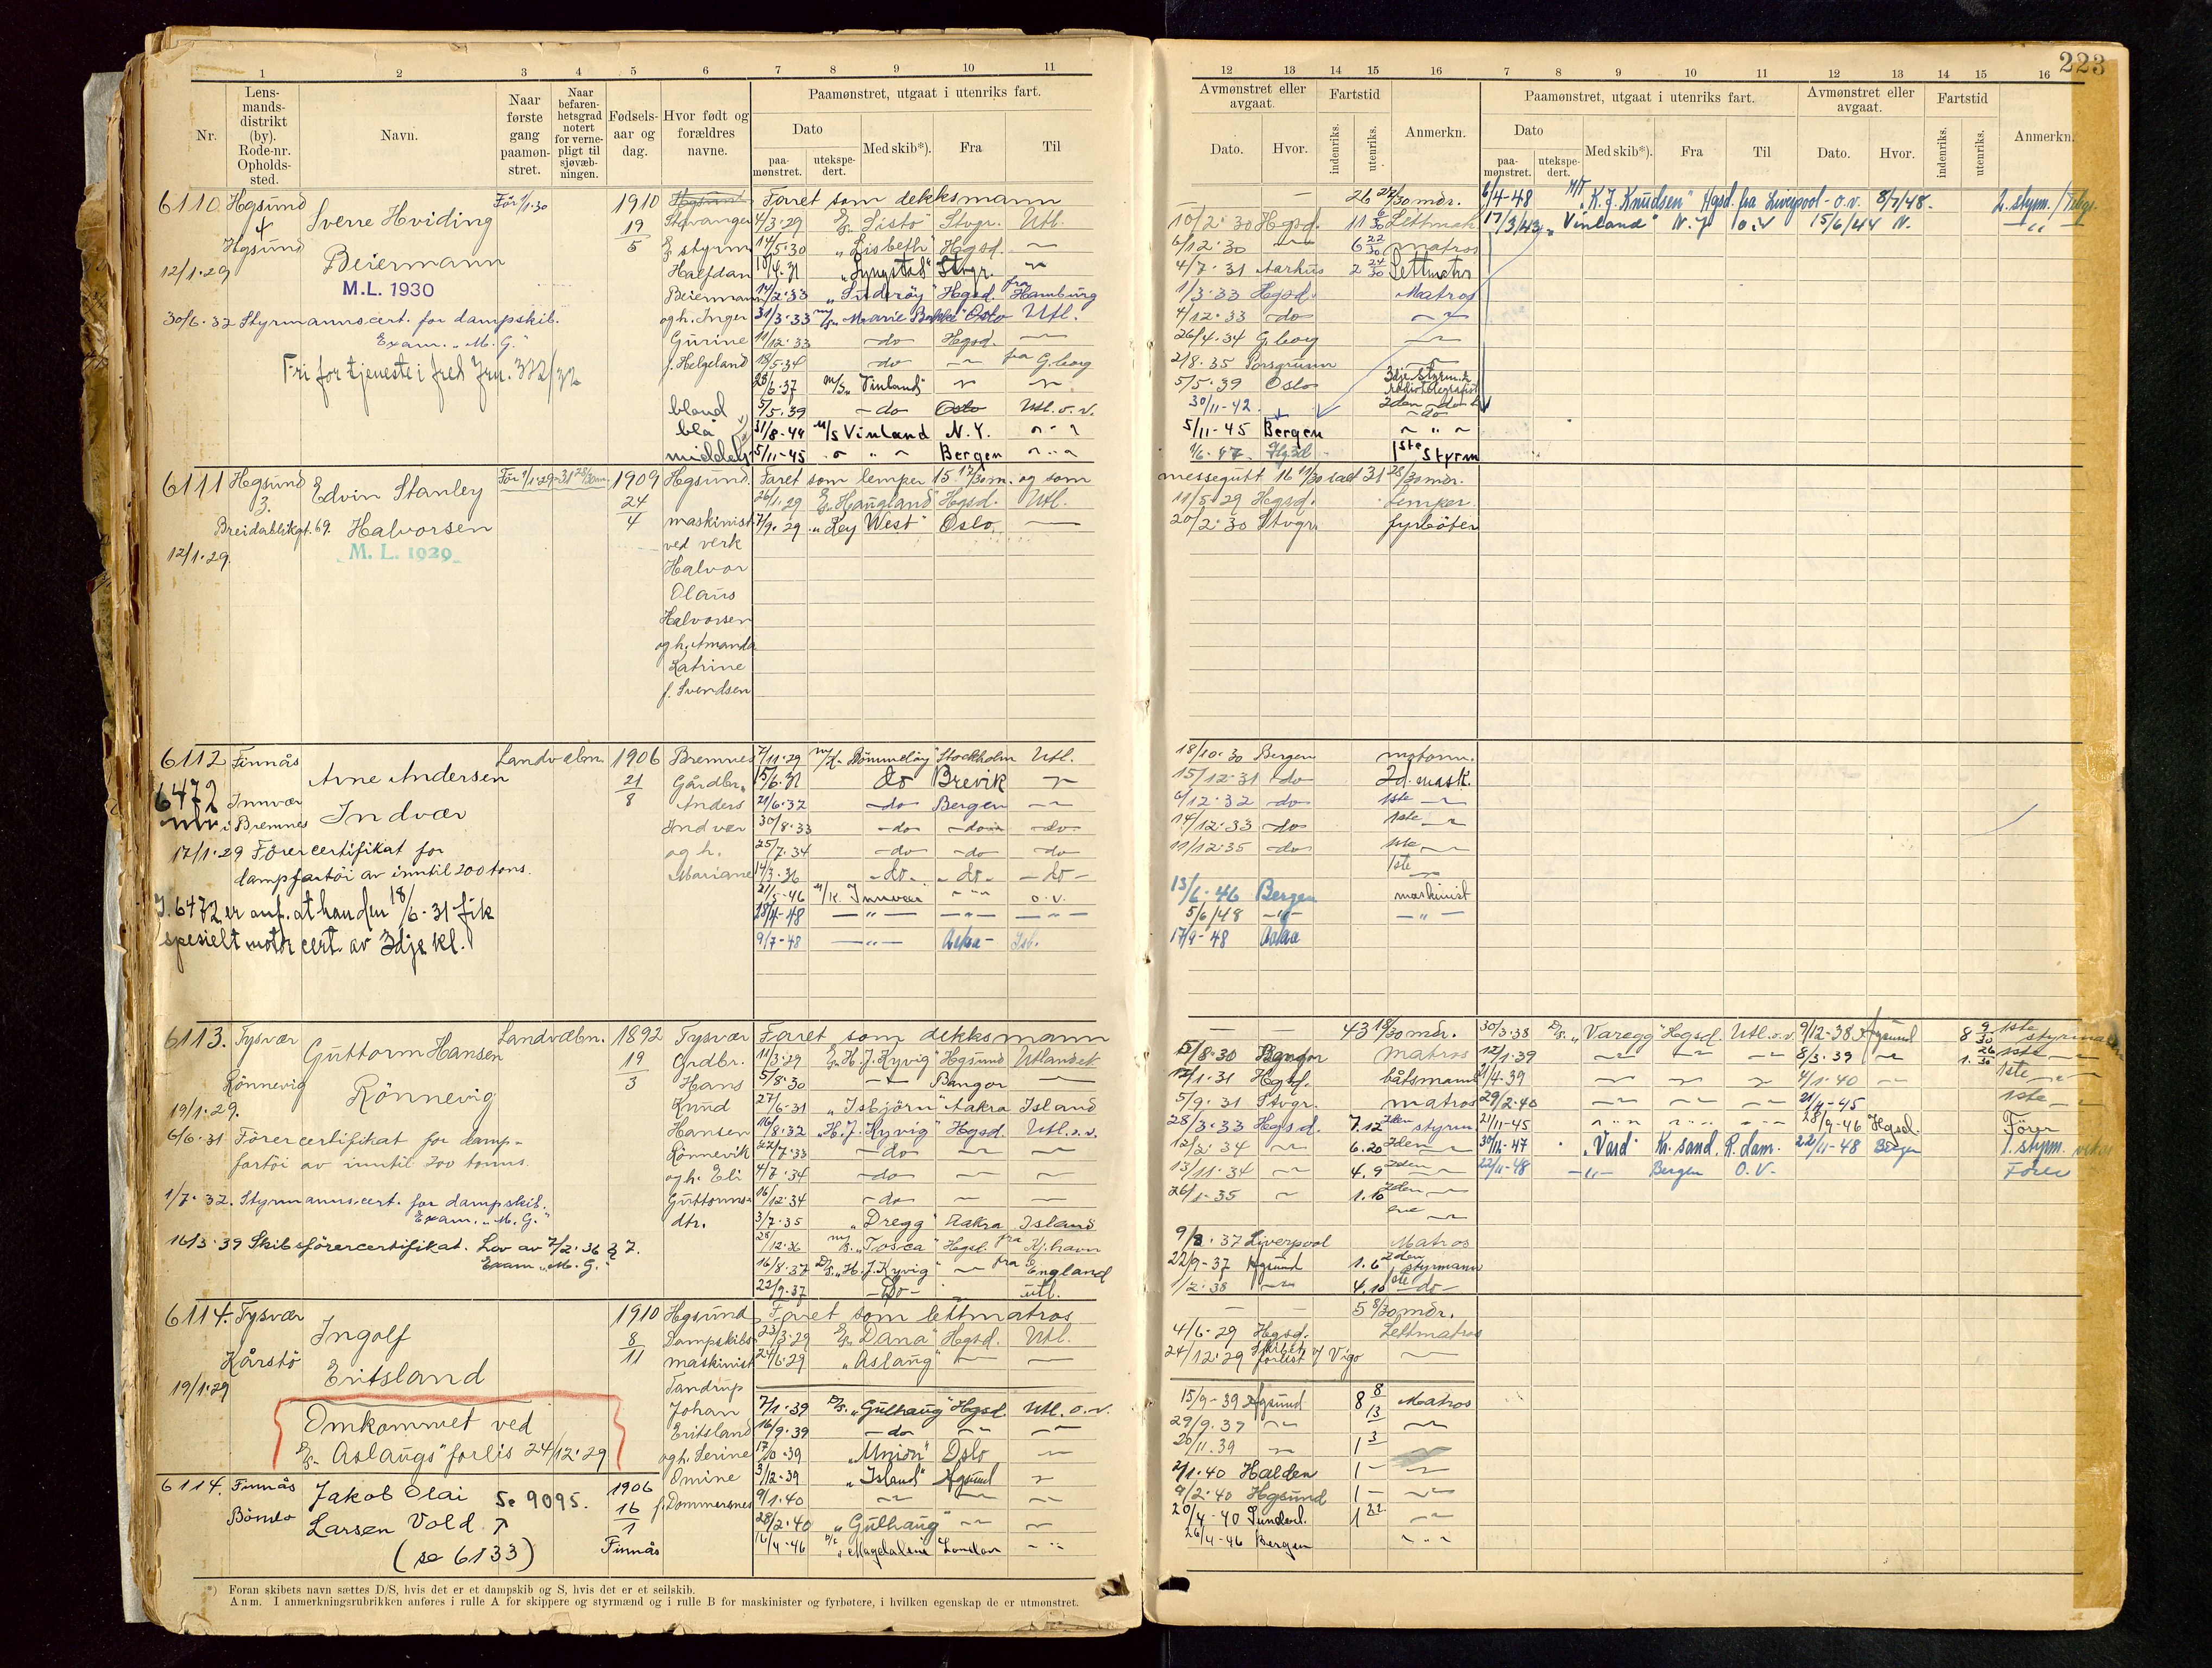 223
1 2 3 4 5 6 7 8 9 10 11
Nr.
Lens-
mands-
distrikt
(by).
Rode-nr.
Opholds-
sted.
Navn.
Naar
første
gang
paamøn-
stret.
Naar
befaren-
hetsgrad
notert
for verne-
pligt til
sjøvæb-
ningen.
Fødsels-
aar og
dag.
Hvor født og
forældres
navne.
Paamønstret, utgaat i utenriks fart.
Dato
paa-
mønstret.
utekspe-
dert.
Med skib*).
Fra
Til
12 13 14 15 16 7 8 9 10 11 12 13 14 15 16
Avmønstret eller
avgaat.
Dato.
Hvor.
Fartstid
indenriks.
utenriks.
Anmerkn.
Paamønstret, utgaat i utenriks fart.
Dato
paa-
mønstret.
utekspe-
dert.
Med skib*).
Fra
Til
Avmønstret eller
avgaat.
Dato.
Hvor.
Fartstid
indenriks.
utenriks.
Anmerkn.
6110 Hgsund
4
Hgsund
12/1-29
Sverre Hviding
Beiermann
M.L. 1930
30/6-32 Styrmannscert. for dampskib.
Exam. "M.G."
Fri for tjeneste i fred Jrn. 372/32
Før 1/1-30
1910
19
5
Hgsund
Stavanger
styrm
Halfdan
Beiermann
og h. Inger
Gurine
f. Helgeland
blond
blå
middels
Faret som dekksmann
4/3-29 "Listo" Stvgr. Utl.
14/5-30 "Lisbeth" Hgsd.
10/4-31 "Lyngstad" Stvgr.
14/2-33 "Suderøy" Hgsd. fra Hamburg
31/3-33 m/s "Marie Bakke" Oslo Utl.
11/12-33 do Hgsd.
18/5-34 do fra G.borg
28/6-37 m/s "Vinland"
5/5-39 do Oslo Utl. o.v.
31/8-44 M/S Vinland N.Y.
5/11-45 Bergen
26 27/30 mdr.
10/2-30 Hgsd. 11 6/30 Lettmatr
6/12-30 6 22/30 matros
4/7-31 Aarhus 2 24/30 Lettmatr
1/3-33 Hgsd. Matros
4/12-33 do
26/4-34 G.borg
2/8-35 Porsgrunn
5/5-39 Oslo 3dje Styrm. &
radiotelegrafist
30/11-42 2den do
5/11-45 Bergen
1/6-47 Hgsd 1ste Styrm
6/4-48 M/T "K.J. Knudsen" Hgsd. fra Liverpool - o.v. 8/7/48. 2. styrm./Telegr.
17/3/43 "Vinland" N.Y o.v 15/6/44 N.
6111 Hgsund
3.
Breidablikgt. 69.
12/1-29.
Edvin Stanley
Halvorsen
M. L. 1929
Før 1/1-29-31 28/30 m.
1909
24
4
Hgsund.
maskinist
ved verk
Halvor
Olaus
Halvorsen
og h. Amanda
Katrine
f. Svendsen
Faret som lemper 15 17/30 m. og som
26/1-29 "Haugland" Hgsd. Utl.
7/9-29 "Key West" Oslo
messegutt 16 11/30 ialt 31 28/30 mdr.
11/5-29 Hgsd. Lemper.
20/2-30 Stvgr. fyrbøter
6112 Finnås
6472
Innvær
i Bremnes
Arne Andersen
Indvær
17/1-29 Førercertifikat for
dampfartøi av inntil 200 tons.
J. 6472 er anf. at han den 18/6-31 fik
spesielt motorcert. av 3dje kl.
Landvæbn.
1906
21
8
Bremnes
Gårdbr.
Anders
Indvær
og h.
Mariane
7/11-29 m/k "Bømmeløy" Stockholm Utl.
15/6-31 do Brevik
21/6-32 do Bergen
30/8-33 do do do
25/7-34 do do do
14/3-36 do do do
21/5-46 M/k. Innvær o.v.
28/4-48
9/7-48 Aakra Isl.
18/10-30 Bergen motorm.
15/12-31 do 2d. mask.
6/12-32 do 1ste
14/12-33 do 1ste
11/12-35 do 1ste
1ste
13/6-46 Bergen maskinist
5/6/48
17/9-48 Aakra
6113. Tysvær
Rönnevig
19/1-29.
Guttorm Hansen
Rönnevig
6/6-31 Førercertifikat for damp-
fartøi av inntil 200 tonns.
1/7-32. Styrmannscert. for dampskib.
Exam. "M.G."
16/3-39 Skibsførercertifikat. Lov av 7/2-36 § 7.
Exam. "M.G."
Landvæbn.
1892
19
3
Tysvær
Grdbr.
Hans
Knud
Hansen
Rönnevik
og h. Eli
Guttorms-
dtr.
Faret som dekksmann
11/3-29 "H.J. Kyvig" Hgsund Utlandet
5/8-30 Bangor
27/6-31 "Isbjørn" Aakra Island
16/8-32 "H.J. Kyvig" Hgsd. Utl. o.v.
22/7-33 do
4/7-34 do
16/12-34 do
3/7-35 "Dregg" Aakra Island
28/12-36 "Tosca" Hgsd. fra Kj.havn
16/8-37 D/S "H.J. Kyvig" fra England
22/9-37 Do utl.
43 18/30 mdr.
5/8-30 Bangor matros
12/1-31 Hgsd. båtsmann
5/9-31 Stvgr. matros
28/3-33 Hgsd. 7.12 2den styrm.
12/2-34 6.20 2den
13/11-34 4.9 2den
26/1-35 1.10 2den
9/8-37 Liverpool Matros
22/9-37 Hgsund 1.6 2den styrmann
1/2-38 4.10 1ste do
30/3-38 D/S "Varegg" Hgsd. Utl. o.v. 9/12-38 Hgsund 8 9/30 1ste styrmann
12/1-39 8/3-39 1. 26/30 1ste
21/4-39 4/1-40 1ste
29/2-40 21/11-45 1ste
21/11-45 28/9-46 Hgsd. Fører
30/12-47 "Vard" Kr.sand. R.dam. 22/11-48 Bergen 1. styrm.
22/11-48 Bergen O.V. Fører
6114. Tysvær
Kårstø
19/1-29
Ingolf
Eritsland
Omkommet ved
"Aslaugs" forlis 24/12-29
1910
8
11
Hgsund
Dampskibs-
maskinist
Tandrup
Johan
Eritsland
og h. Serine
Omine
f. Dommersnes
Faret som lettmatros
23/3-29 "Dana" Hgsd. Utl.
24/6-29 "Aslaug"
7/1-39 D/S. "Gulhaug" Hgsd. Utl. o.v.
16/9-39 do
17/10-39 "Union" Oslo
3/12-39 "Island" Hgsund
9/1-40
28/2-40 "Gulhaug"
16/4-46 "Magdalene" London
5 8/30 mdr.
4/6-29 Hgsd. Lettmatros
24/12-29 Skibet forlist v/ Vigo
15/9-39 Hgsund 8 8/13 Matros
29/9-39
20/11-39 1 3
2/1-40 Halden 1
9/2-40 Hgsund 1
20/4-40 Sunderl. 1 22
26/4-46 Bergen
6114. Finnås
Bömlo
Jakob Olai Se 9095.
Larsen Vold
(se 6133)
1906
16
1
Finnås
*) Foran skibets navn sættes D/S, hvis det er et dampskib og S, hvis det er et seilskib.
Anm. I anmerkningsrubrikken anføres i rulle A for skippere og styrmænd og i rulle B for maskinister og fyrbøtere, i hvilken egenskap de er utmønstret.